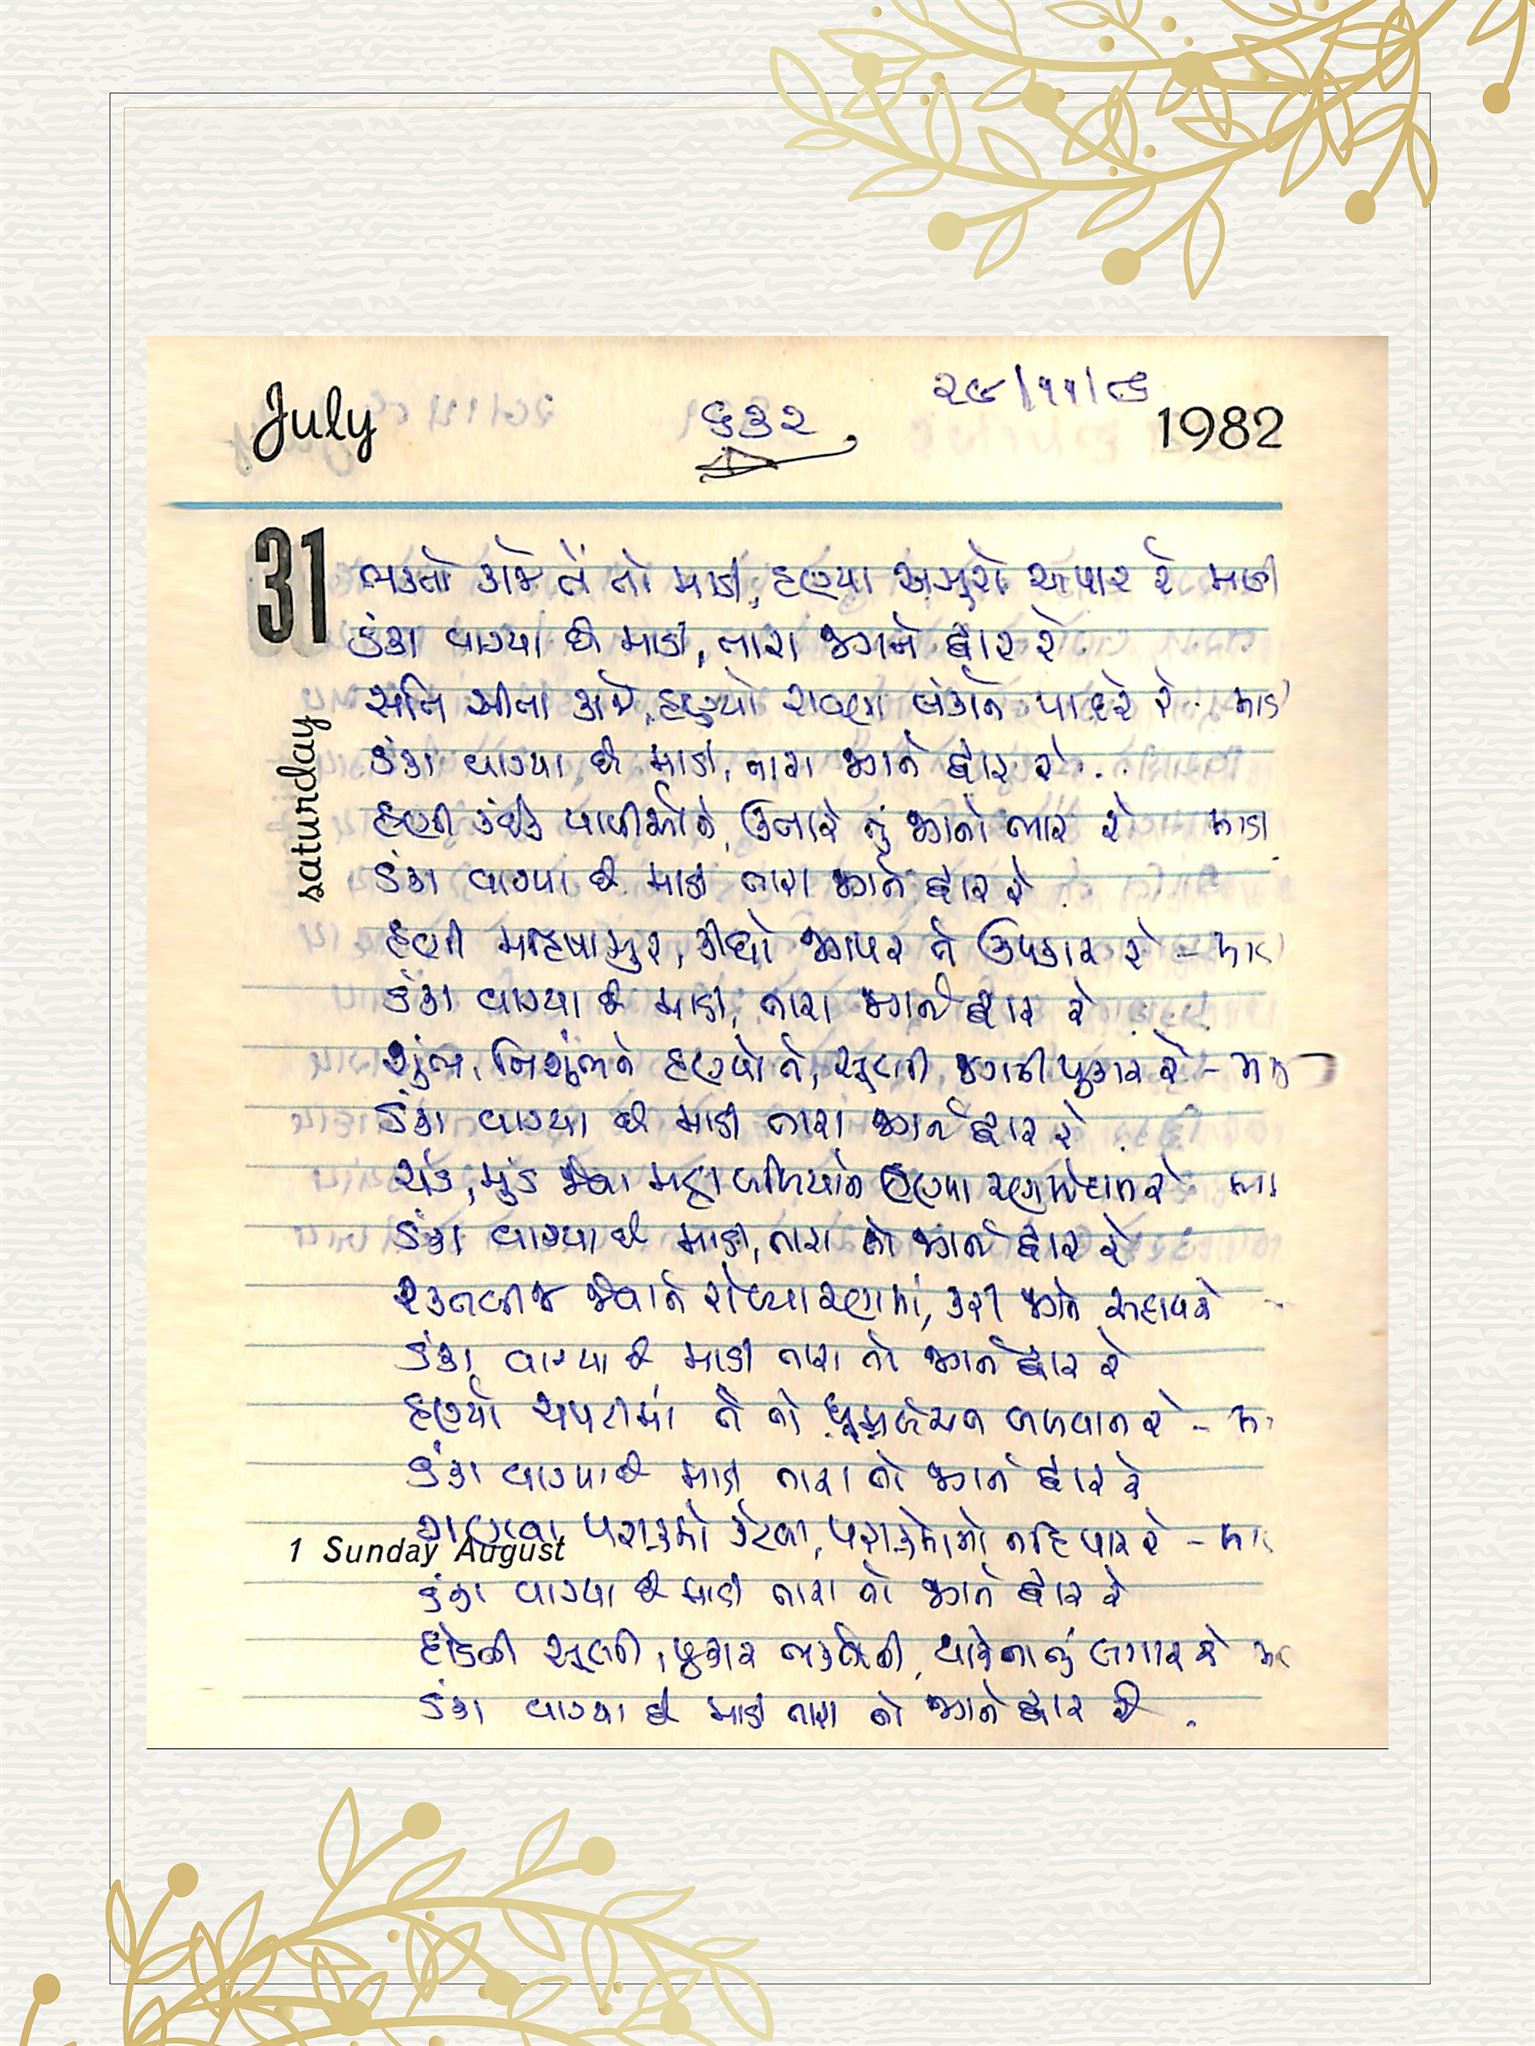 July
૬૩૨
૨૯/૧૧/૮૬
1982
31
saturday
ભક્તો કાજે તેં તો માડી, હણ્યા અસુરો અપાર રે માડી
ડંકા વાગ્યા છે માડી, તારા જગને દ્વાર રે
સતિ સીતા કાજે, હણ્યો રાવણ લંકાને પાદરે રે - માડી
ડંકા વાગ્યા છે માડી, તારા જગને દ્વાર રે..
હણી કંઈક પાપીઓને, ઉતારે તું જગનો ભાર રે માડી
ડંકા વાગ્યા છે માડી તારા જગને દ્વાર રે
હણી મહિષાસુર, કીધો જગપર તેં ઉપકાર રે - માડ
ડંકા વાગ્યા છે માડી, તારા જગને દ્વાર રે
શુંભ, નિશુંભને હણ્યો તેં, સૂણી જગની પુકાર રે - માડ
ડંકા વાગ્યા છે માડી તારા જગને દ્વાર રે
ચંડ, મુંડ જેવા મહા બળિયાને હણ્યા રણમેદાન રે મા
ડંકા વાગ્યા છે માડી, તારા તો જગને દ્વાર રે
રક્તબીજ જેવાને રોળ્યા રણમાં, કરી જગને સહાય રે -
ડંકા વાગ્યા છે માડી તારા તો જગને દ્વાર રે
હણ્યો ચપટીમાં તેં તો ધૂમ્રલોચન બળવાન રે - મા
ડંકા વાગ્યા છે માડી તારા તો જગને દ્વાર રે
ગણાવવા પરાક્રમો કેટલા, પરાક્રમોનો નહિ પાર રે - મા
1 Sunday August
ડંકા વાગ્યા છે માડી તારા તો જગને દ્વાર રે
દોડતી સૂણી, પુકાર ભક્તોની, લાગે ના તું લગાર રે મા
ડંકા વાગ્યા છે માડી તારા તો જગને દ્વાર રે.